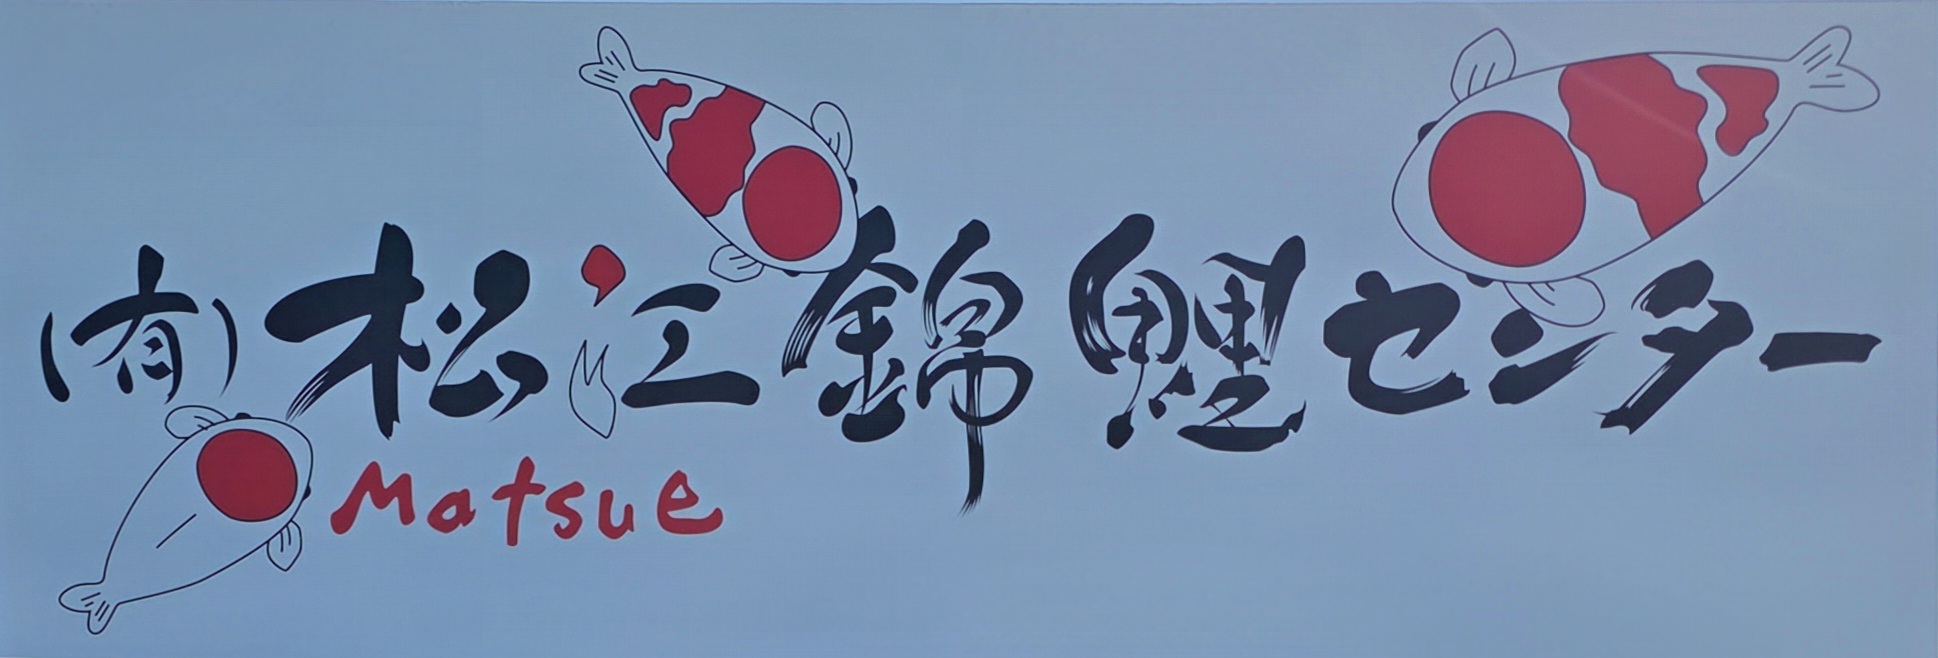 (有)松江錦鯉センター
Matsue